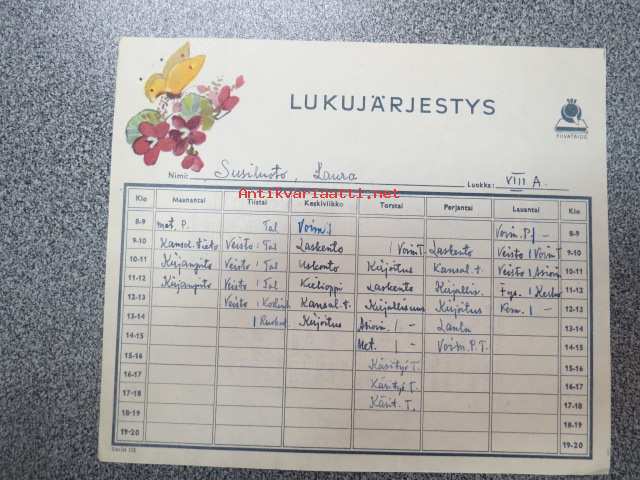 LUKUJÄRJESTYS
KUVATAIDE
Nimi: Susiluoto, Laura Luokka: VIII A.
Antikvariaatti.net
Klo Maanantai Tiistai Keskiviikko Torstai Perjantai Lauantai Klo
8-9 met. P. Tal Voim. Voim. P. / - 8-9
9-10 Kansal. tieto Veisto / Tal Laskento / Voim T. Laskento Veisto / Voim T. 9-10
10-11 Kirjanpito Veisto / Tal Uskonto Kirjoitus Kansal. t. Veisto / Asioim 10-11
11-12 Kirjanpito Veisto / Tal Kielioppi Laskento Kirjallis. Fys. / 11-12
12-13 Veisto / Kansal. t. Kirjallisuus Kirjoitus Kem. / - 12-13
13-14 / Ruokat Kirjoitus Asioim. / - Laulu 13-14
14-15 Met. / - Voim. P. T. 14-15
15-16 Käsityö T. 15-16
16-17 Käsityö T. 16-17
17-18 Käsit. T. 17-18
18-19 18-19
19-20 19-20